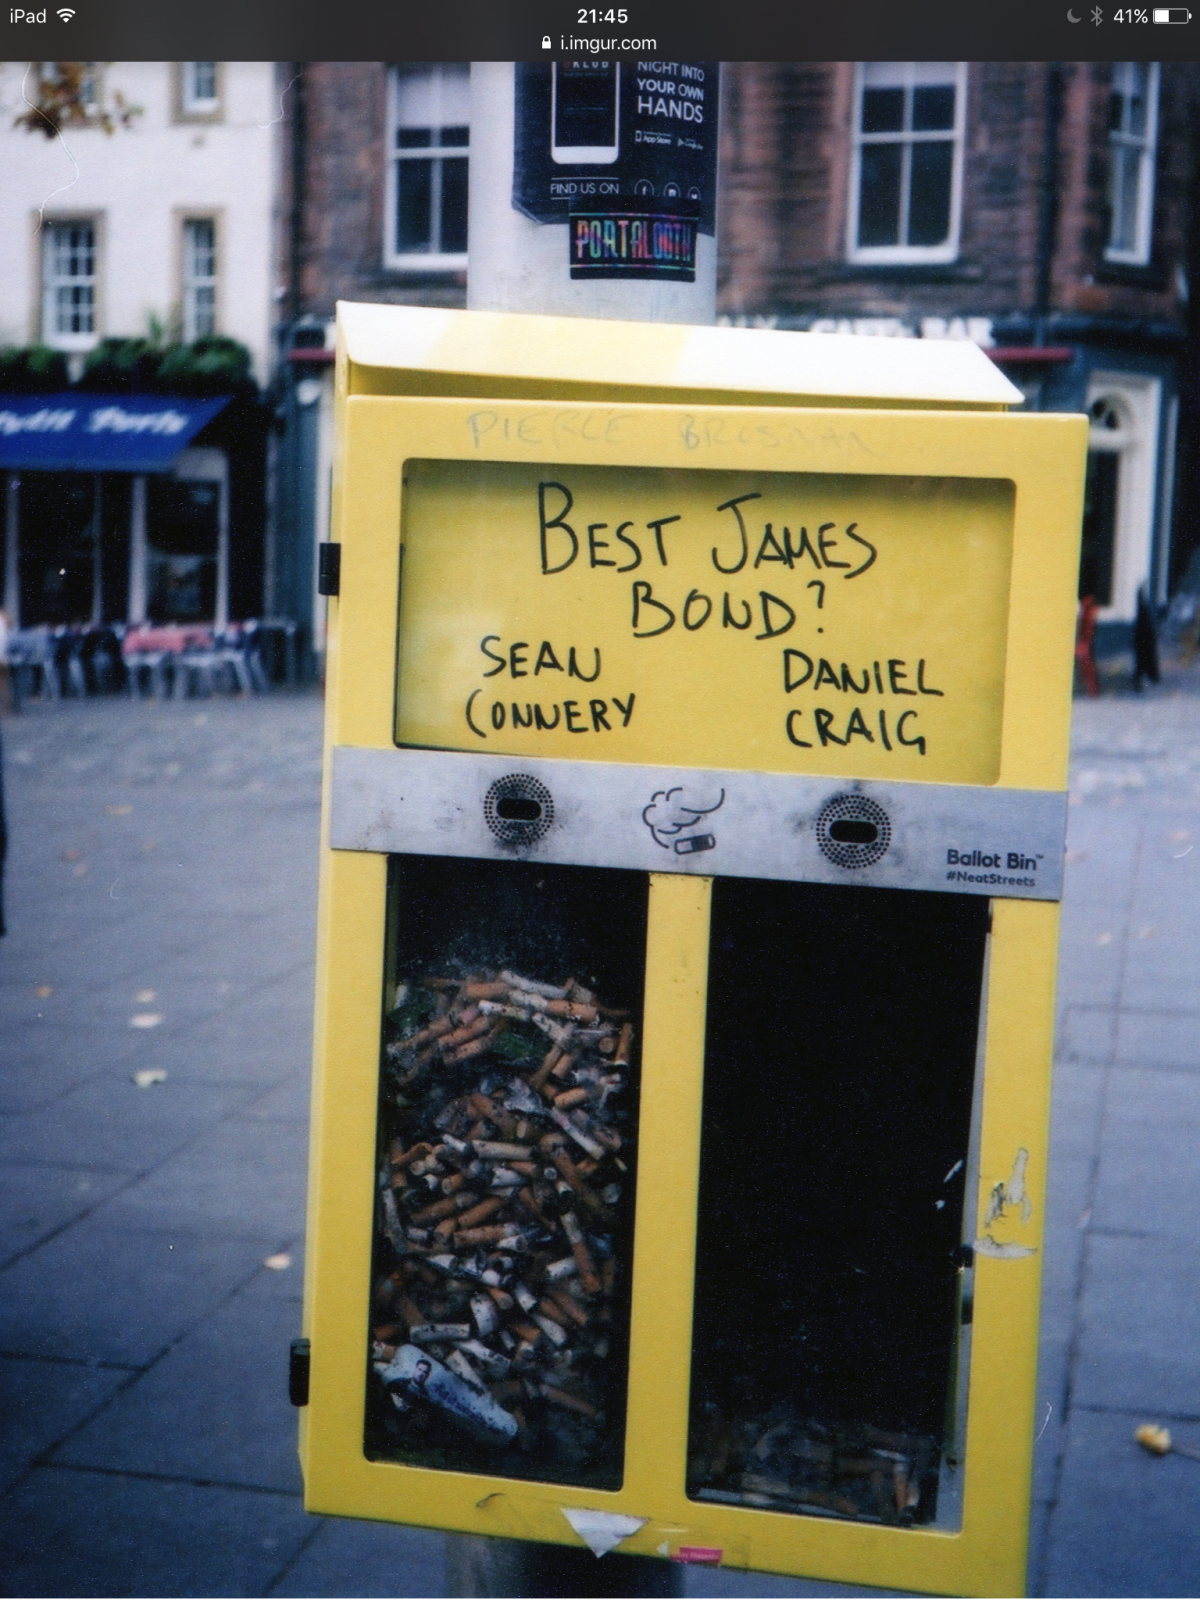 iPad
21:45
41%
i.imgur.com
KLUB
NIGHT INTO
YOUR OWN
HANDS
App Store
FIND US ON
PORTALOOTH
PIERCE BROSNAN
BEST JAMES
BOND?
SEAN
CONNERY
DANIEL
CRAIG
Ballot Bin™
#NeatStreets